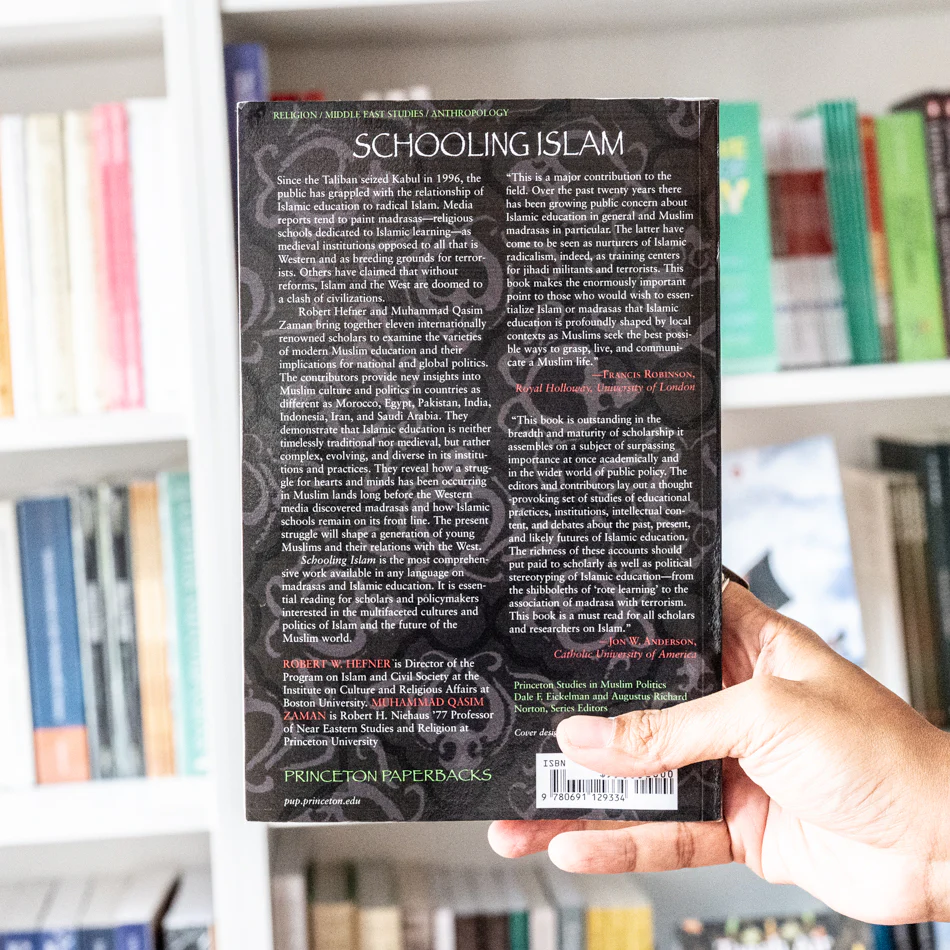 RELIGION / MIDDLE EAST STUDIES / ANTHROPOLOGY
SCHOOLING ISLAM
Since the Taliban seized Kabul in 1996, the
public has grappled with the relationship of
Islamic education to radical Islam. Media
reports tend to paint madrasas—religious
schools dedicated to Islamic learning—as
medieval institutions opposed to all that is
Western and as breeding grounds for terror-
ists. Others have claimed that without
reforms, Islam and the West are doomed to
a clash of civilizations.
Robert Hefner and Muhammad Qasim
Zaman bring together eleven internationally
renowned scholars to examine the varieties
of modern Muslim education and their
implications for national and global politics.
The contributors provide new insights into
Muslim culture and politics in countries as
different as Morocco, Egypt, Pakistan, India,
Indonesia, Iran, and Saudi Arabia. They
demonstrate that Islamic education is neither
timelessly traditional nor medieval, but rather
complex, evolving, and diverse in its institu-
tions and practices. They reveal how a strug-
gle for hearts and minds has been occurring
in Muslim lands long before the Western
media discovered madrasas and how Islamic
schools remain on its front line. The present
struggle will shape a generation of young
Muslims and their relations with the West.
Schooling Islam is the most comprehen-
sive work available in any language on
madrasas and Islamic education. It is essen-
tial reading for scholars and policymakers
interested in the multifaceted cultures and
politics of Islam and the future of the
Muslim world.
ROBERT W. HEFNER is Director of the
Program on Islam and Civil Society at the
Institute on Culture and Religious Affairs at
Boston University. MUHAMMAD QASIM
ZAMAN is Robert H. Niehaus '77 Professor
of Near Eastern Studies and Religion at
Princeton University
PRINCETON PAPERBACKS
pup.princeton.edu
"This is a major contribution to the
field. Over the past twenty years there
has been growing public concern about
Islamic education in general and Muslim
madrasas in particular. The latter have
come to be seen as nurturers of Islamic
radicalism, indeed, as training centers
for jihadi militants and terrorists. This
book makes the enormously important
point to those who would wish to essen-
tialize Islam or madrasas that Islamic
education is profoundly shaped by local
contexts as Muslims seek the best possi-
ble ways to grasp, live, and communi-
cate a Muslim life."
—FRANCIS ROBINSON,
Royal Holloway, University of London
"This book is outstanding in the
breadth and maturity of scholarship it
assembles on a subject of surpassing
importance at once academically and
in the wider world of public policy. The
editors and contributors lay out a thought
-provoking set of studies of educational
practices, institutions, intellectual con-
tent, and debates about the past, present,
and likely futures of Islamic education.
The richness of these accounts should
put paid to scholarly as well as political
stereotyping of Islamic education—from
the shibboleths of 'rote learning' to the
association of madrasa with terrorism.
This book is a must read for all scholars
and researchers on Islam."
—JON W. ANDERSON,
Catholic University of America
Princeton Studies in Muslim Politics
Dale F. Eickelman and Augustus Richard
Norton, Series Editors
Cover
ISBN
9 780691 129334